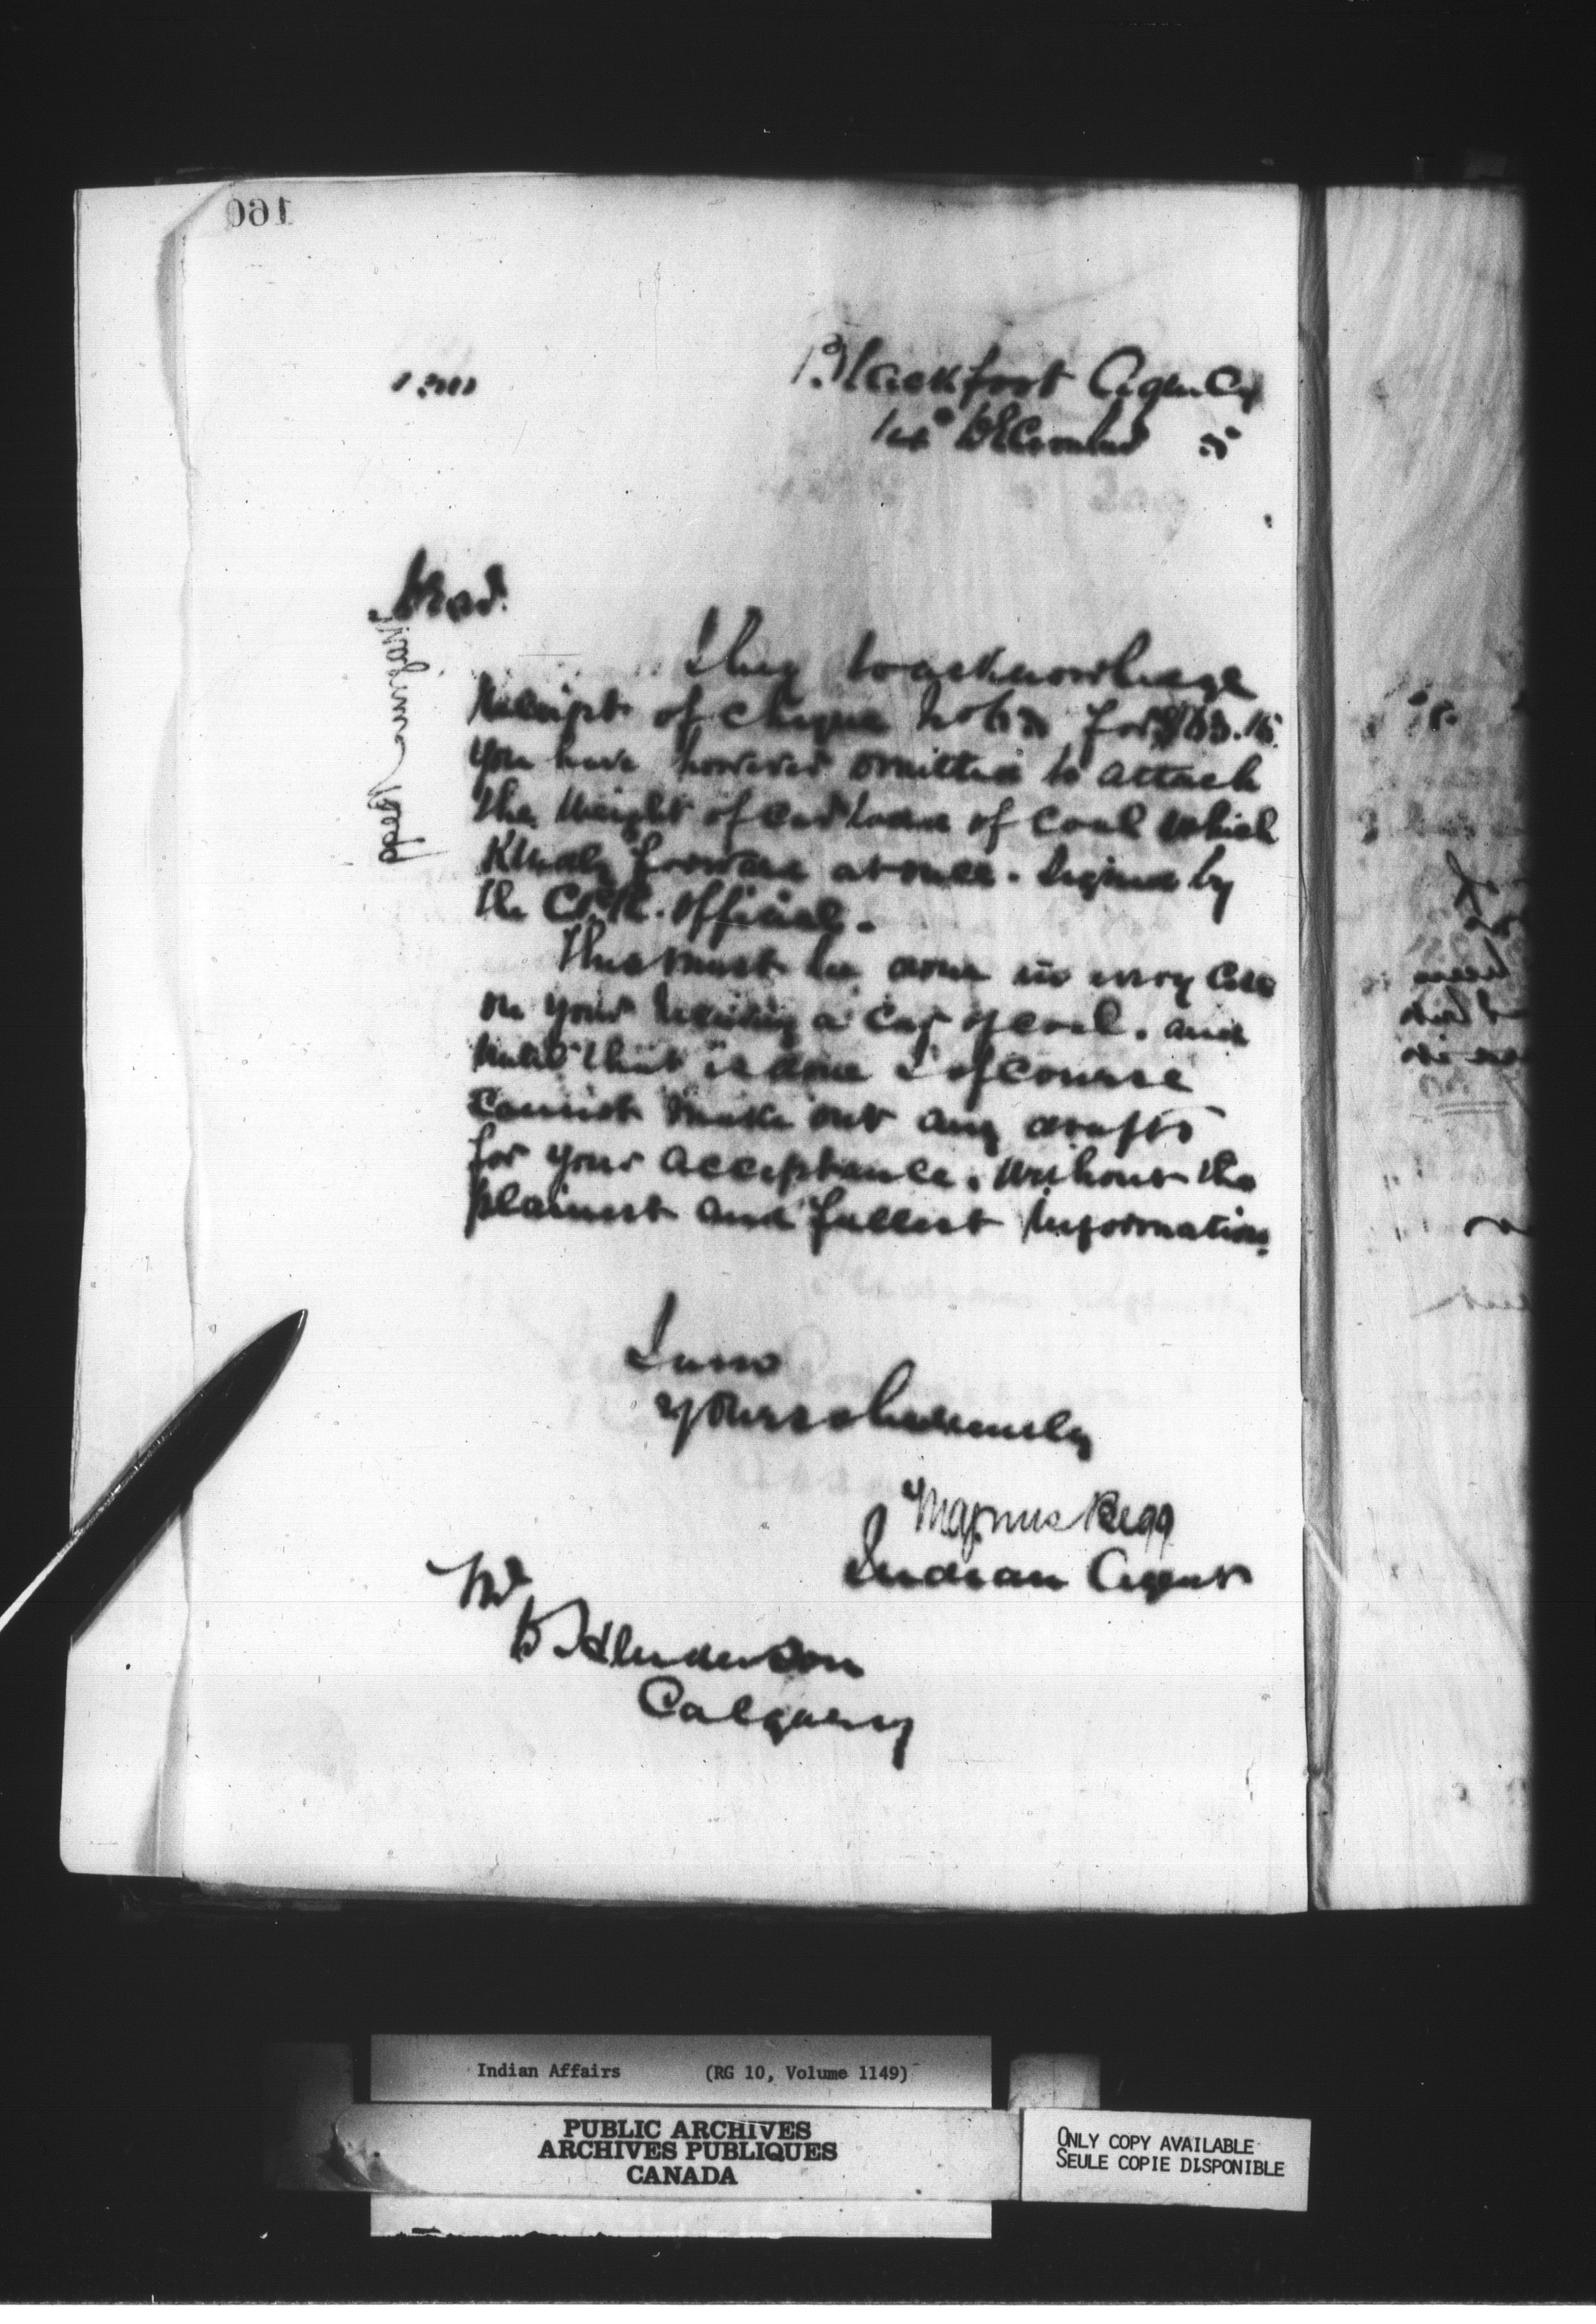 160
Blackfoot Agency
1st December 5
Dear Sir
I beg to acknowledge
Receipt of cheque No for $163.15
you have however omitted to attach
the weight of car load of coal which
Kindly forward at once. Signed by
the C.P.R. official.
This must be done in every case
on your a car of coal. and
until that is done I of course
cannot make out any drafts
for your acceptance. Without the
plainest and fullest Information.
I am
Yours
Magnus Begg
Indian Agent
Magnus Begg
Mr
Henderson
Calgary
Indian Affairs (RG 10, Volume 1149)
PUBLIC ARCHIVES
ARCHIVES PUBLIQUES
CANADA
ONLY COPY AVAILABLE
SEULE COPIE DISPONIBLE